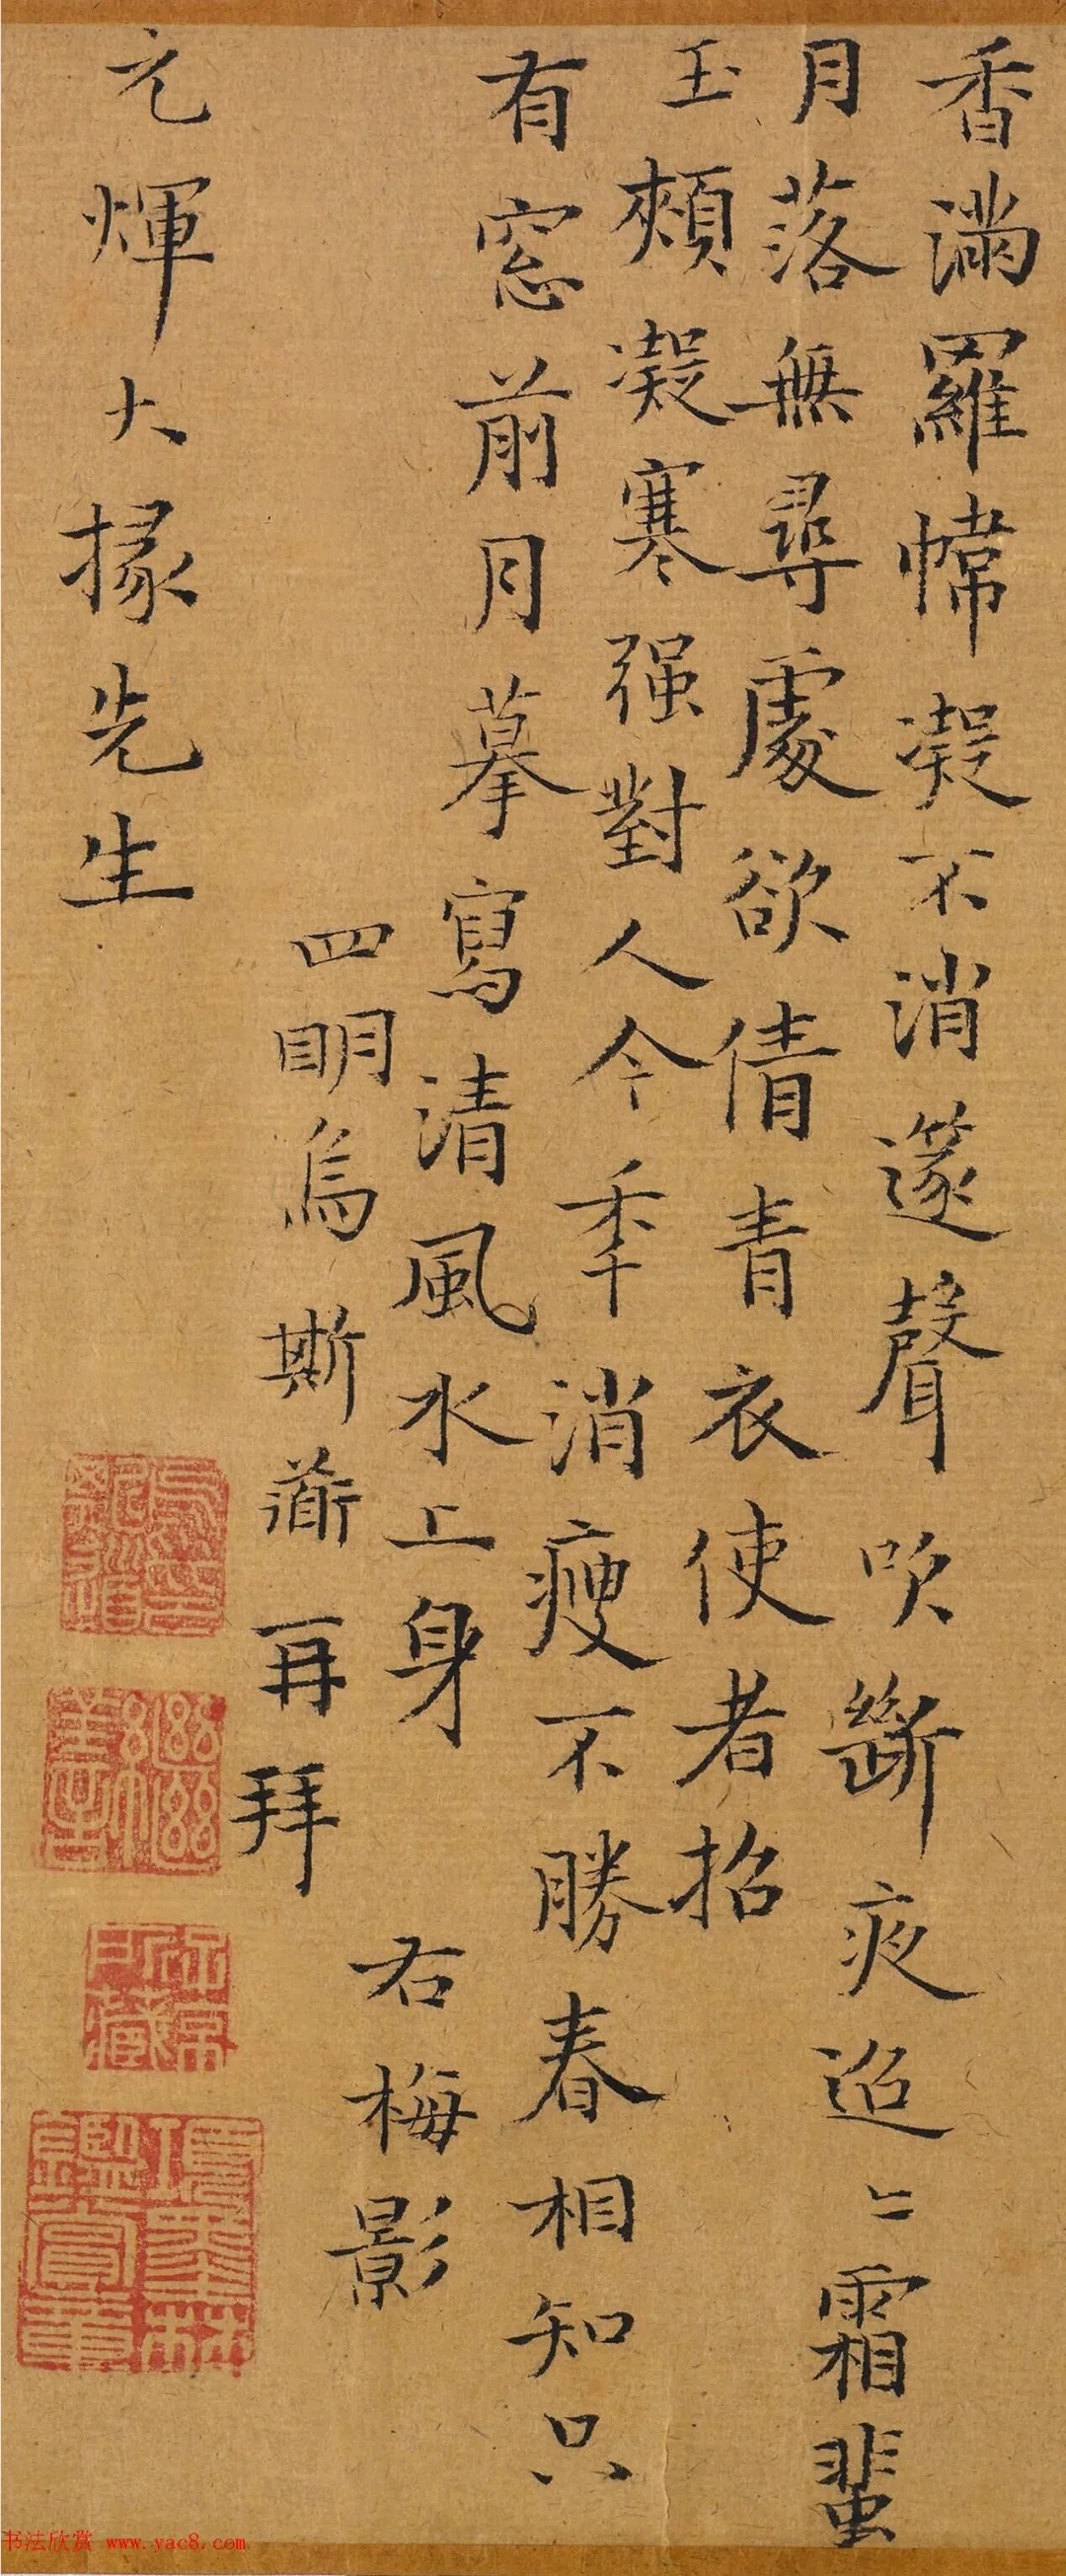 香滿羅幃凝不消篴聲吹斷夜迢〻霜蜚
月落無尋處欲倩青衣使者招
玉頰凝寒强對人今秊消瘦不勝春相知只
有窓前月摹寫清風水上身
右梅影
四眀烏斯衟再拜
元煇大掾先生
項墨林鑑賞章
书法欣赏 www.yac8.com